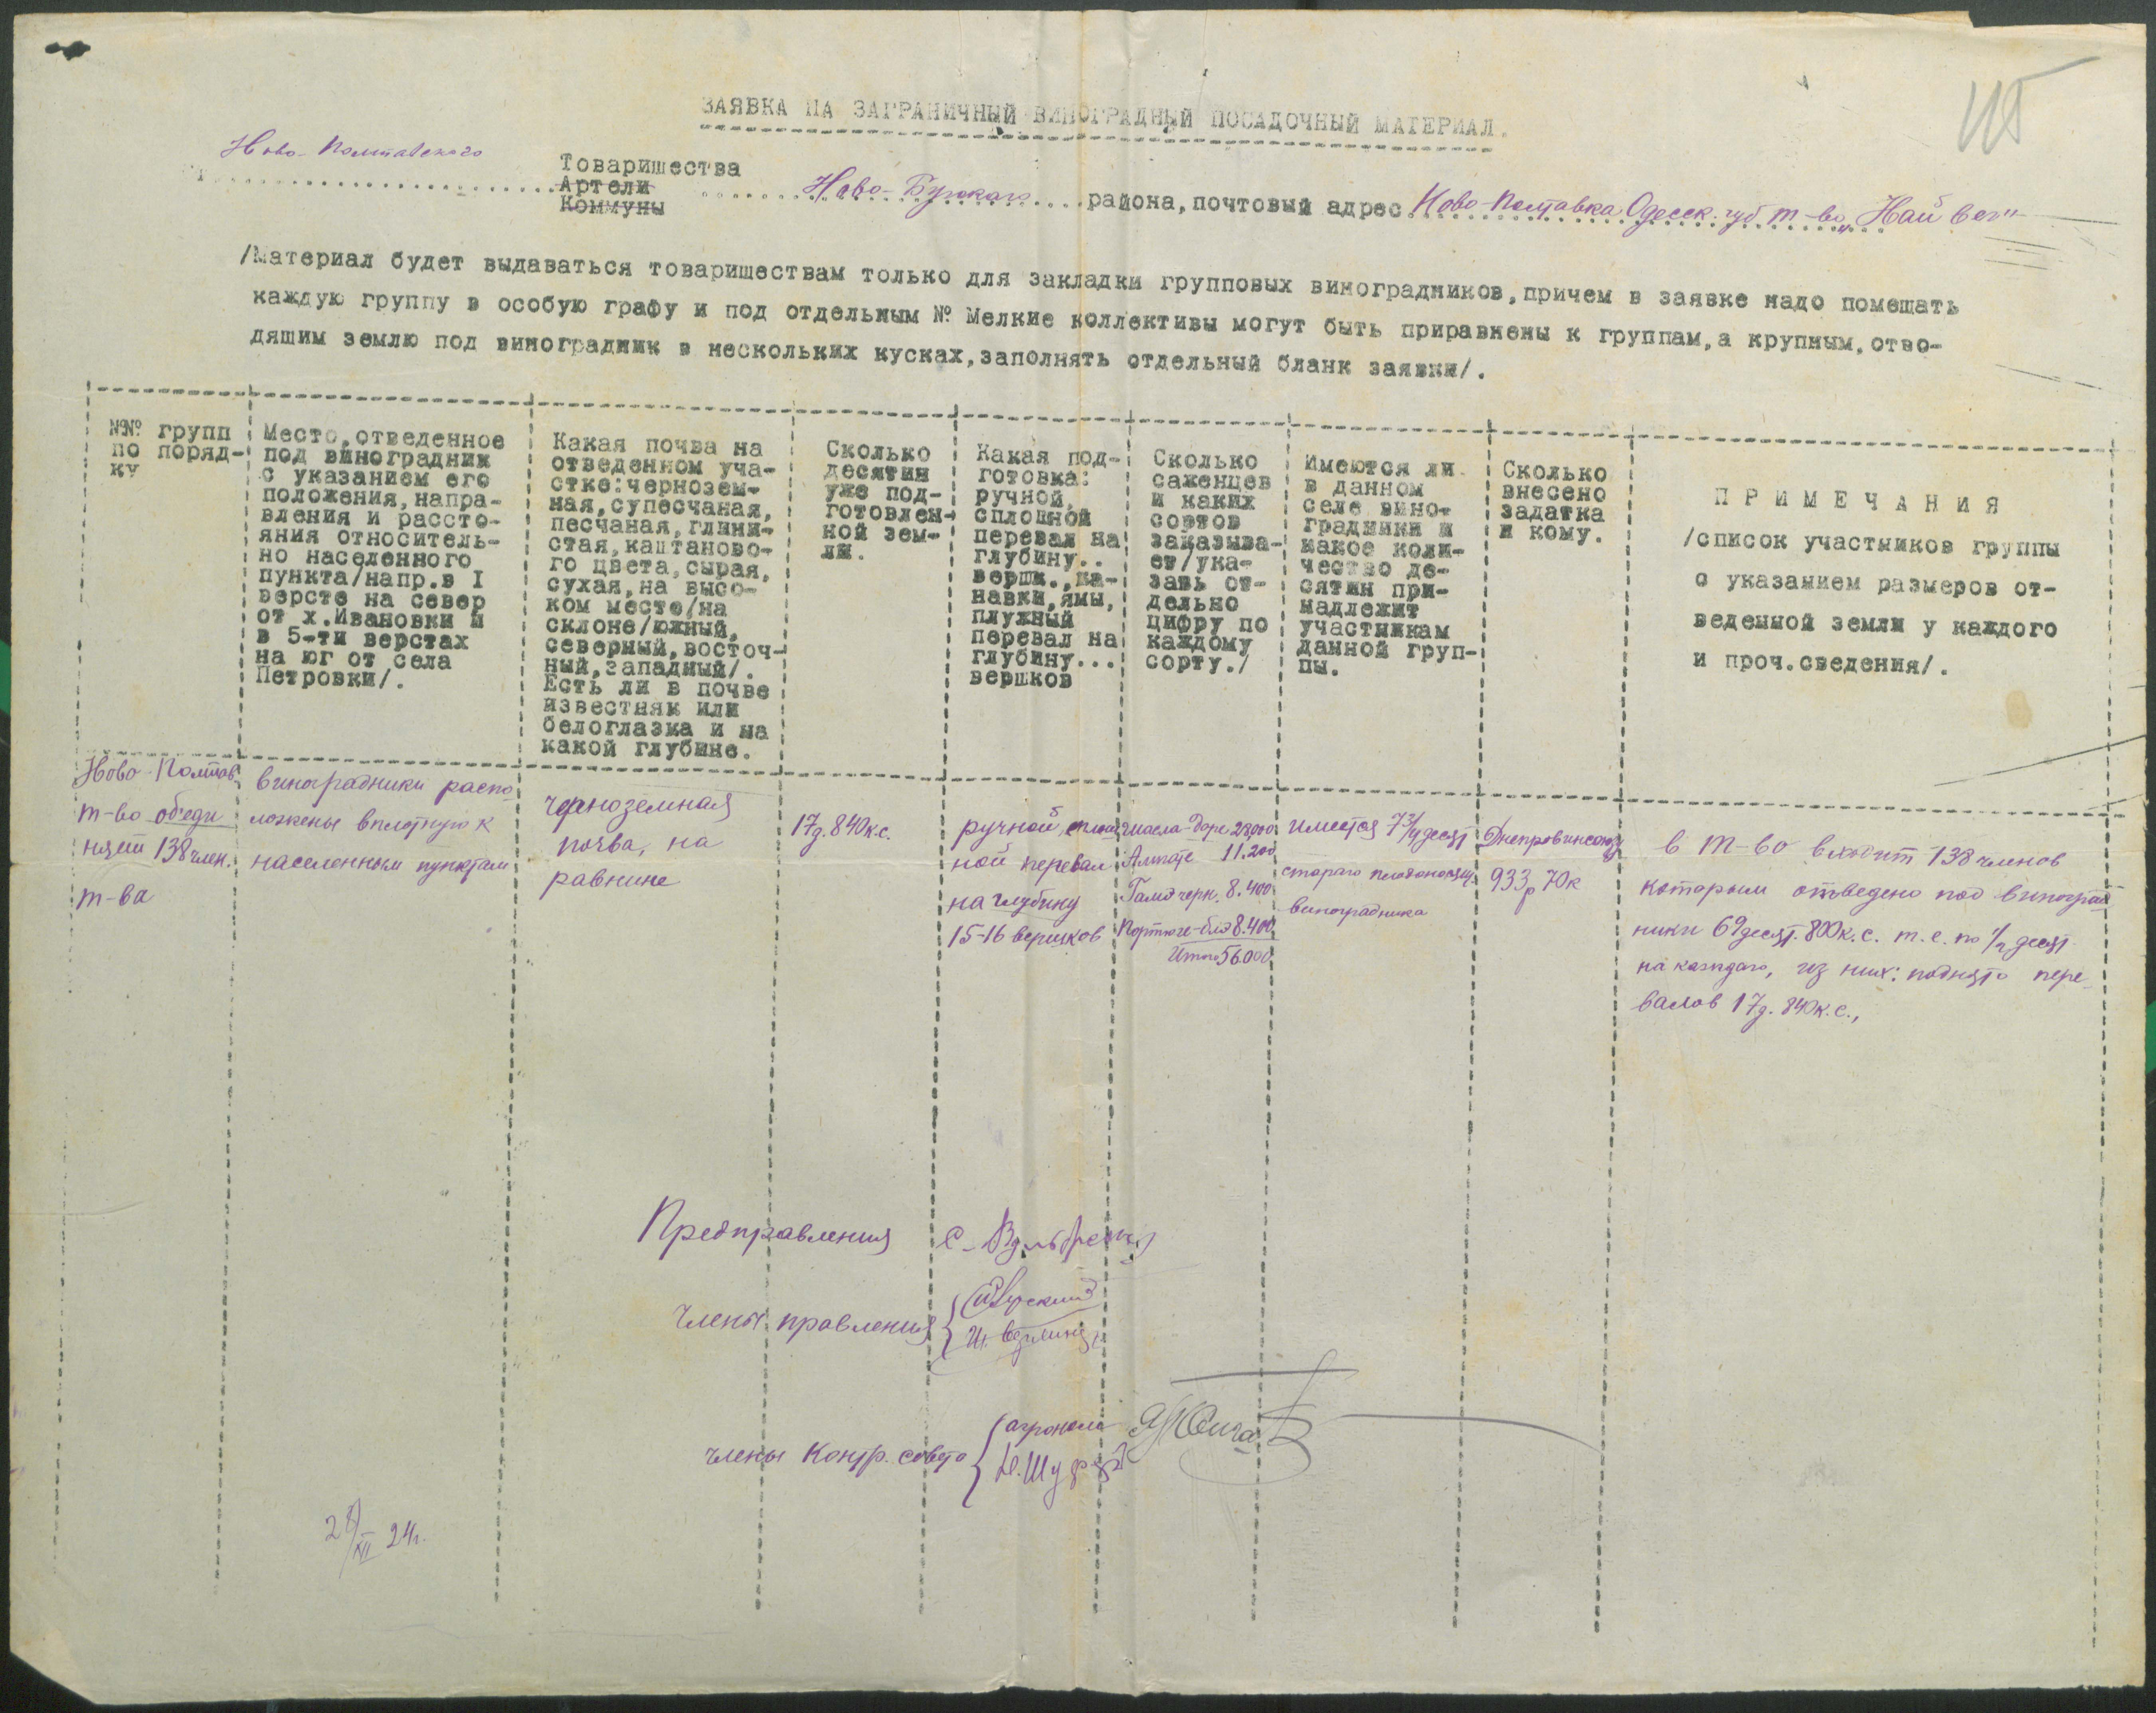 115
ЗАЯВКА НА ЗАГРАНИЧНЫЙ ВИНОГРАДНЫЙ ПОСАДОЧНЫЙ МАТЕРИАЛ.
Ново-Полтавского Товарищества Ново-Бугскаго района, почтовый адрес Ново-Полтавка Одесск. губ т-во "Най Вег"
Артели
Коммуны
/Материал будет выдаваться товариществам только для закладки групповых виноградников, причем в заявке надо помещать
каждую группу в особую графу и под отдельным № Мелкие коллективы могут быть приравнены к группам, а крупным, отво-
дящим землю под виноградник в нескольких кусках, заполнять отдельный бланк заявки/.
№№ групп
по поряд-
ку
Место, отведенное
под виноградник
с указанием его
положения, напра-
вления и рассто-
яния относитель-
но населенного
пункта/напр. в I
версте на север
от х. Ивановки и
в 5-ти верстах
на юг от села
Петровки/.
Какая почва на
отведенном уча-
стке: чернозем-
ная, супесчаная,
песчаная, глини-
стая, каштаново-
го цвета, сырая,
сухая, на высо-
ком месте/на
склоне/южный,
северный, восточ-
ный, западный/.
Есть ли в почве
известняк или
белоглазка и на
какой глубине.
Сколько
десятин
уже под-
готовлен-
ной зем-
ли.
Какая под-
готовка:
ручной,
сплошной
перевал на
глубину..
вершк., ка-
навки, ямы,
плужный
перевал на
глубину...
вершков
Сколько
саженцев
и каких
сортов
заказыва-
ет/ука-
зать от-
дельно
цифру по
каждому
сорту./
Имеются ли
в данном
селе вино-
градники и
какое коли-
чество де-
сятин при-
надлежит
участникам
данной груп-
пы.
Сколько
внесено
задатка
и кому.
ПРИМЕЧАНИЯ
/список участников группы
с указанием размеров от-
веденной земли у каждого
и проч. сведения/.
Ново-Полтав.
т-во об'еди
няет 138 член.
т-ва
виноградники распо-
ложены вплотную к
населенным пунктам
черноземная
почва, на
равнине
17д. 840к.с.
ручной, сплош
ной перевал
на глубину
15-16 вершков
Шасла-доре 28,000
Аликате 11.200
Гамэ черн. 8.400
Портюге-блэ 8.400
Итого 56.000
имеется 7 3/4 десят
стараго плодоносящ.
виноградника
Днепровинсоюзу
933р 70к
в т-во входит 138 членов
которым отведено под виноград
ники 69 десят. 800к.с. т.е. по 1/2 десят.
на каждаго, из них: поднято пере-
валов 17д. 840к.с.,
Предправления
члены правления
члены Контр. совета
агроном
28/XII 24г.